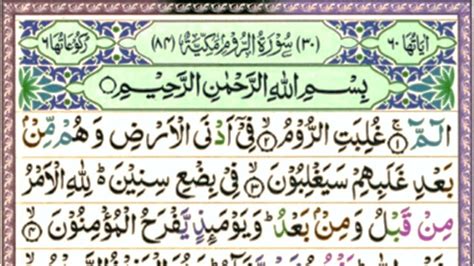 اٰيَاتُهَا ٦٠ (٣٠) سُوْرَةُ الرُّوْمِ مَكِّيَّةٌ (٨٤) رُكُوْعَاتُهَا ٦
بِسْمِ اللهِ الرَّحْمٰنِ الرَّحِيْمِ
الٓمّٓ ۝١ غُلِبَتِ الرُّوْمُ ۝٢ فِيْٓ اَدْنَى الْاَرْضِ وَهُمْ مِّنْۢ
بَعْدِ غَلَبِهِمْ سَيَغْلِبُوْنَ ۝٣ فِيْ بِضْعِ سِنِيْنَ ؕ لِلّٰهِ الْاَمْرُ
مِنْ قَبْلُ وَمِنْۢ بَعْدُ ؕ وَيَوْمَىِٕذٍ يَّفْرَحُ الْمُؤْمِنُوْنَ ۝٤